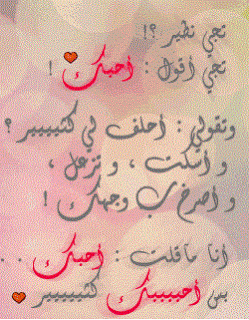 تجي نطير ؟!
تجي أقول : أحبك !
وتقولي : أحلف لي كثييييير ؟
و أسكت ، و تزعل ،
و أصرخ ب وجهك !
أنا ماقلت : أحبك . .
بس أحبببببك كثيييييير